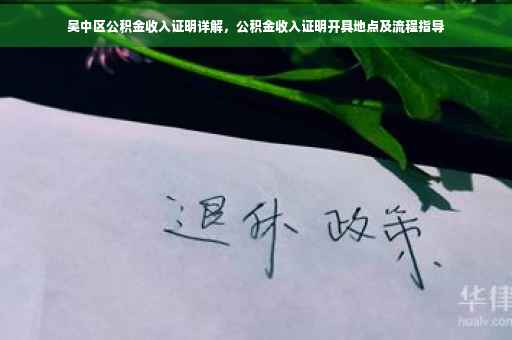 吴中区公积金收入证明详解，公积金收入证明开具地点及流程指导
退休 政策
华律
hualv.com